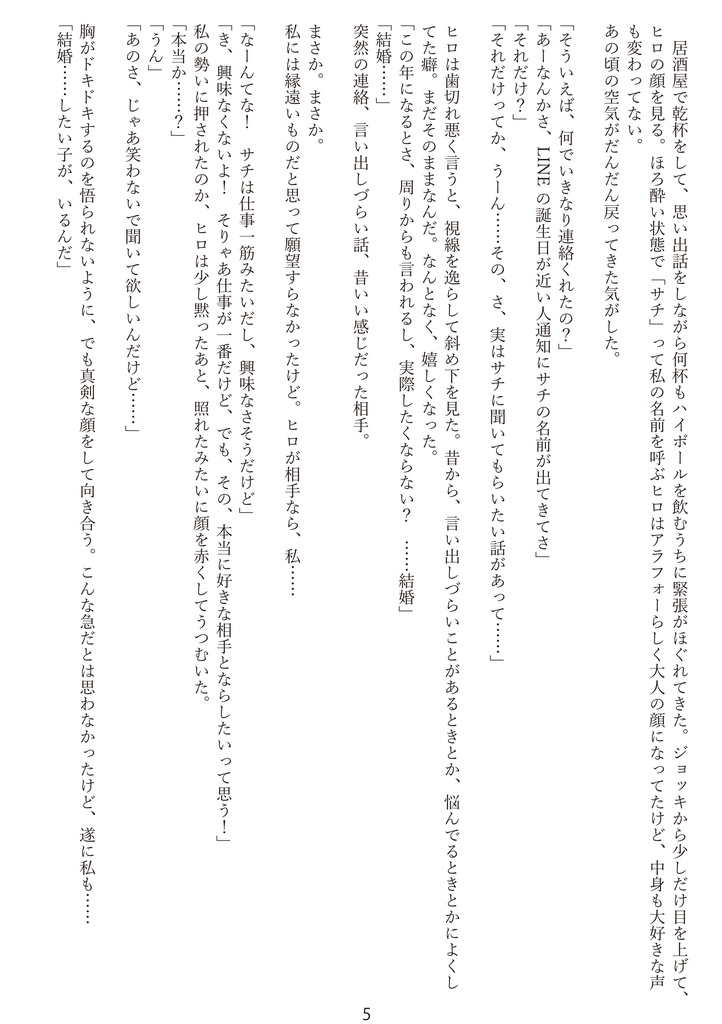 居酒屋で乾杯をして、思い出話をしながら何杯もハイボールを飲むうちに緊張がほぐれてきた。ジョッキから少しだけ目を上げて、
ヒロの顔を見る。ほろ酔い状態で「サチ」って私の名前を呼ぶヒロはアラフォーらしく大人の顔になってたけど、中身も大好きな声
も変わってない。
あの頃の空気がだんだん戻ってきた気がした。
「そういえば、何でいきなり連絡くれたの？」
「あーなんかさ、LINEの誕生日が近い人通知にサチの名前が出てきてさ」
「それだけ？」
「それだけってか、うーん……その、さ、実はサチに聞いてもらいたい話があって……」
ヒロは歯切れ悪く言うと、視線を逸らして斜め下を見た。昔から、言い出しづらいことがあるときとか、悩んでるときとかによくし
てた癖。まだそのままなんだ。なんとなく、嬉しくなった。
「この年になるとさ、周りからも言われるし、実際したくならない？　……結婚」
「結婚……」
突然の連絡、言い出しづらい話、昔いい感じだった相手。
まさか。まさか。
私には縁遠いものだと思って願望すらなかったけど。ヒロが相手なら、私……
「なーんてな！　サチは仕事一筋みたいだし、興味なさそうだけど」
「き、興味なくないよ！　そりゃあ仕事が一番だけど、でも、その、本当に好きな相手とならしたいって思う！」
私の勢いに押されたのか、ヒロは少し黙ったあと、照れたみたいに顔を赤くしてうつむいた。
「本当か……？」
「うん」
「あのさ、じゃあ笑わないで聞いて欲しいんだけど……」
胸がドキドキするのを悟られないように、でも真剣な顔をして向き合う。こんな急だとは思わなかったけど、遂に私も……
「結婚……したい子が、いるんだ」
5